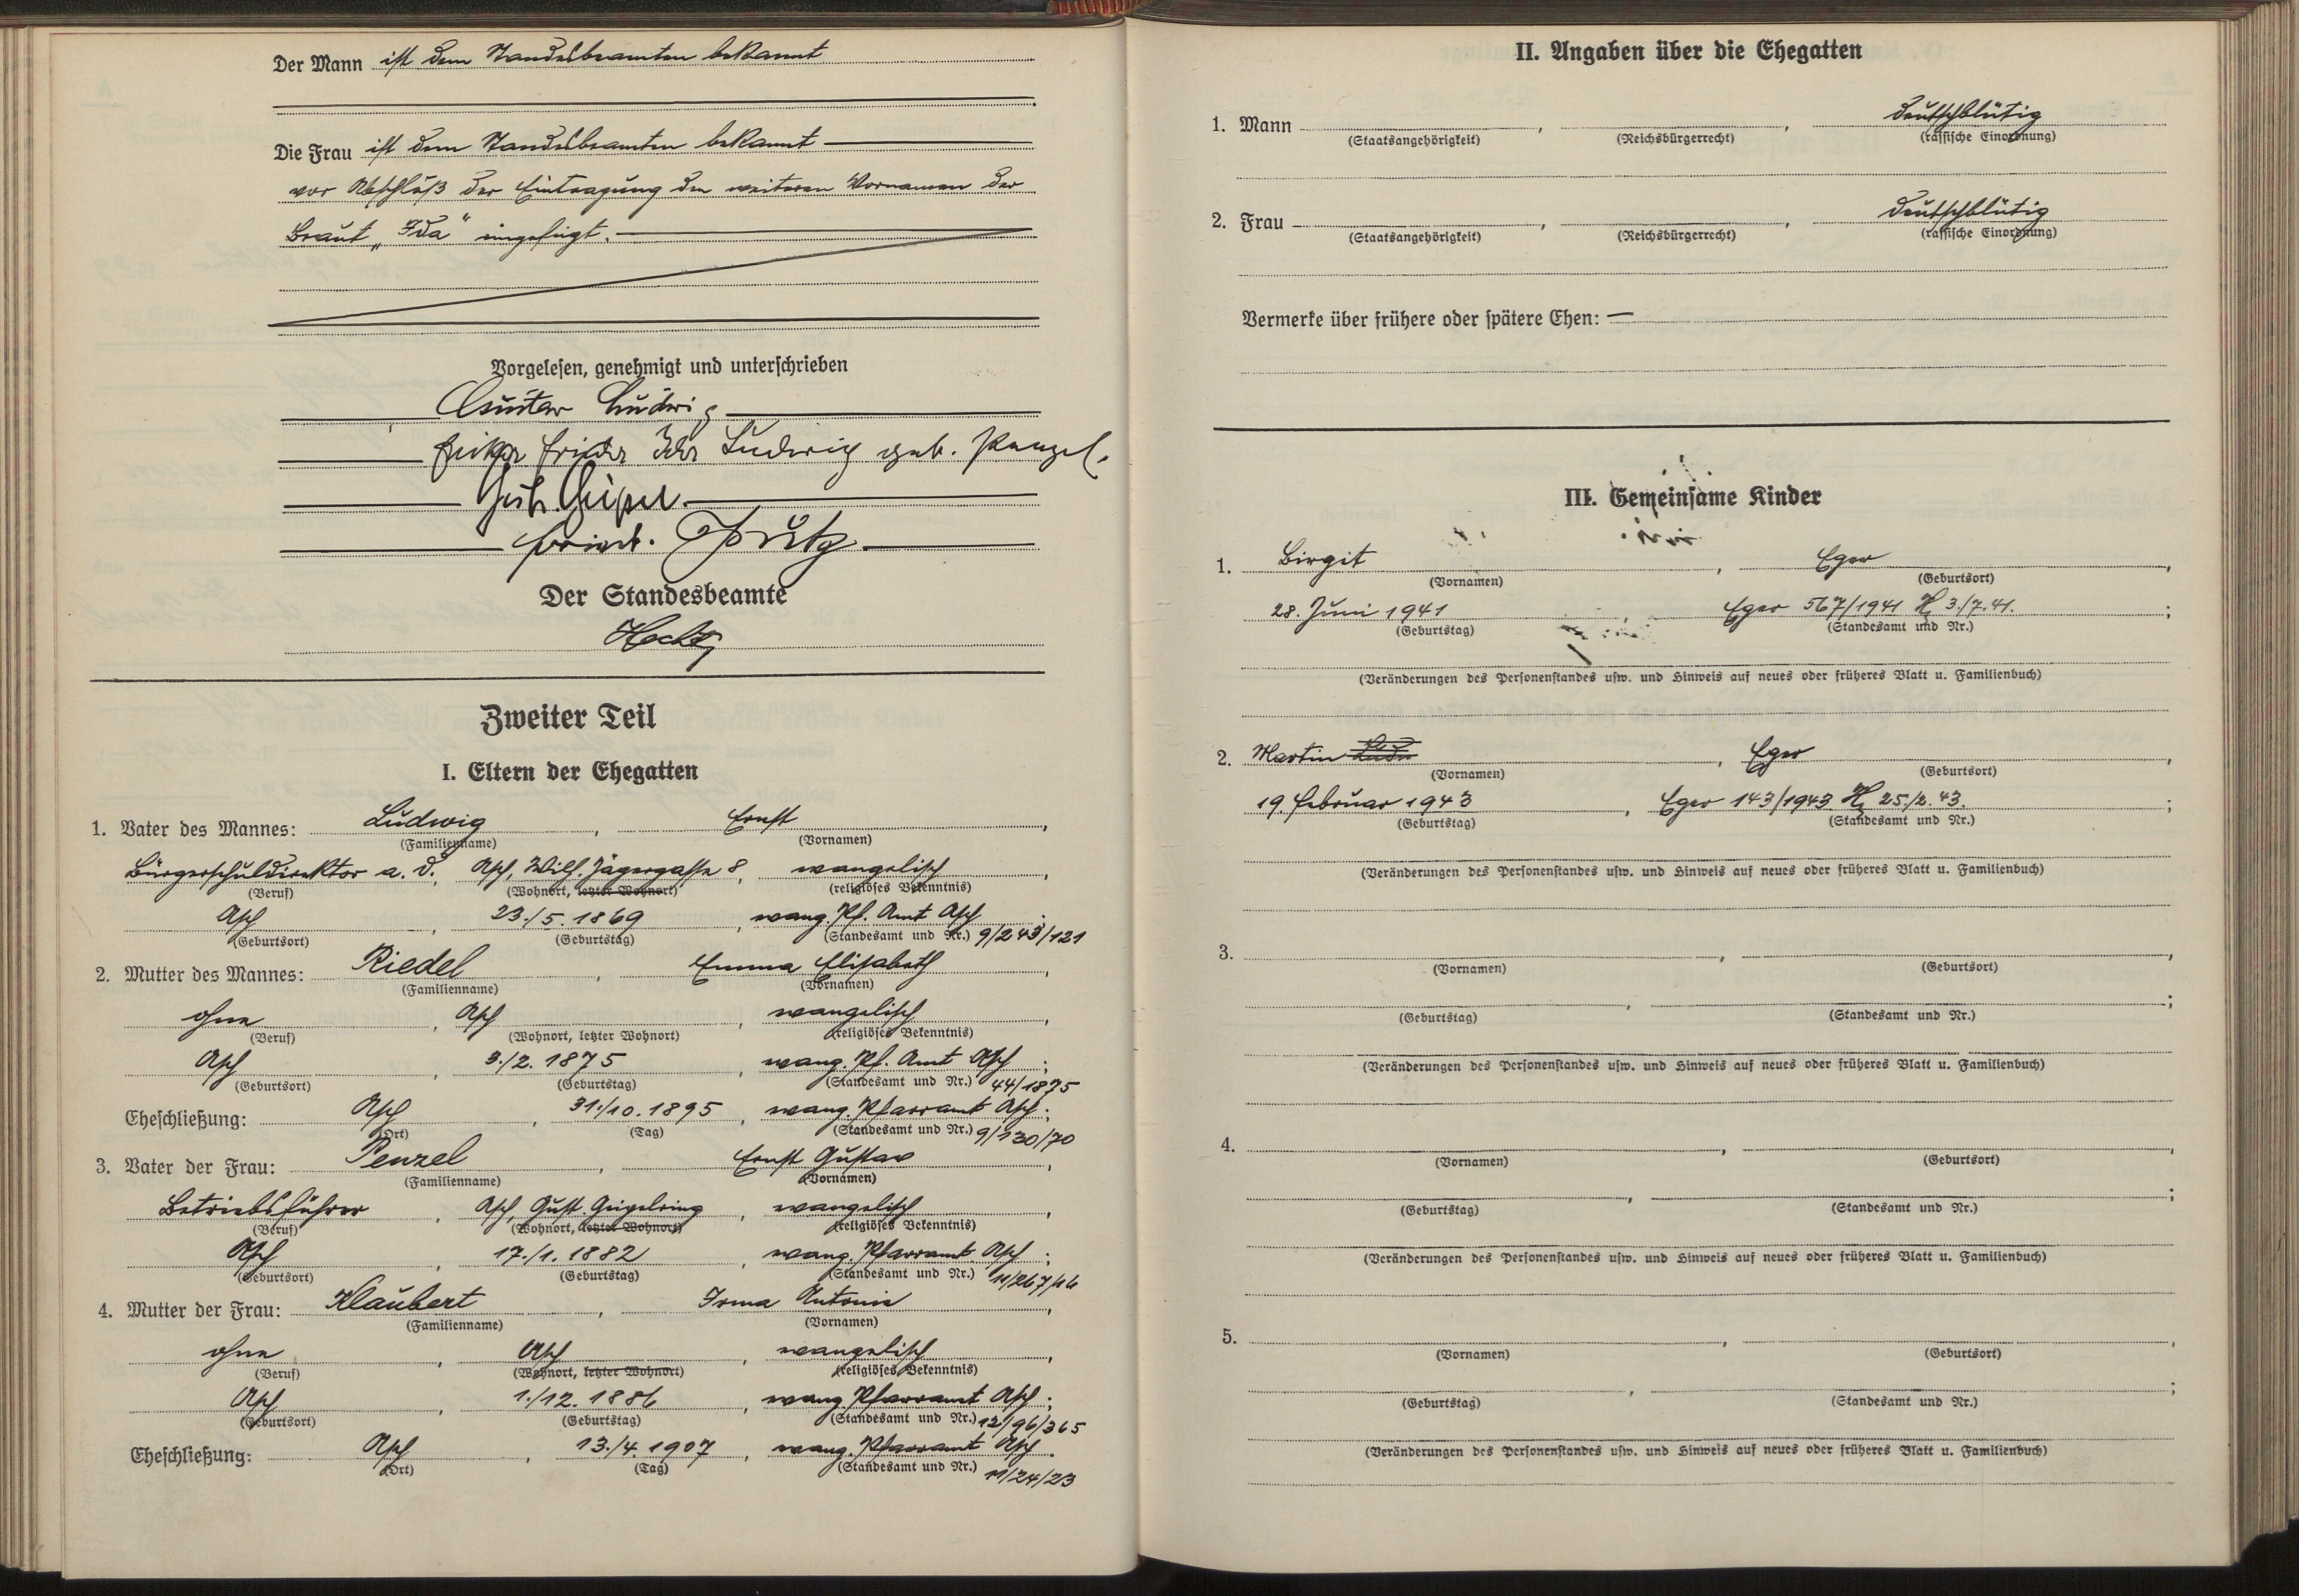 Der Mann ist dem Standesbeamten bekannt
Die Frau ist dem Standesbeamten bekannt
vor Abschluß der Eintragung den weiteren Vornamen der
Braut „Ida“ eingefügt.
Vorgelesen, genehmigt und unterschrieben
Gustav Ludwig
Frieda Ida Ludwig geb. Penzel.
Gust. Geipel.
Der Standesbeamte
Zweiter Teil
I. Eltern der Ehegatten
1. Vater des Mannes: Ludwig, Ernst,
(Familienname) (Vornamen)
Bürgerschuldirektor a. D., Asch, Wilh. Jägergasse 8, evangelisch,
(Beruf) (Wohnort, letzter Wohnort) (religiöses Bekenntnis)
Asch, 23./5. 1869, evang. Pf. Amt Asch;
(Geburtsort) (Geburtstag) (Standesamt und Nr.) 9/243/121
2. Mutter des Mannes: Riedel, Emma Elisabeth,
(Familienname) (Vornamen)
ohne, Asch, evangelisch,
(Beruf) (Wohnort, letzter Wohnort) (religiöses Bekenntnis)
Asch, 3./2. 1875, evang. Pf. Amt Asch;
(Geburtsort) (Geburtstag) (Standesamt und Nr.) 44/1875
Eheschließung: Asch, 31./10. 1895, evang. Pfarramt Asch.
(Ort) (Tag) (Standesamt und Nr.) 9/130/70
3. Vater der Frau: Penzel, Ernst Gustav,
(Familienname) (Vornamen)
Betriebsführer, Asch, Gust. Geipelring, evangelisch,
(Beruf) (Wohnort, letzter Wohnort) (religiöses Bekenntnis)
Asch, 17./1. 1882, evang. Pfarramt Asch;
(Geburtsort) (Geburtstag) (Standesamt und Nr.) 11/267/16
4. Mutter der Frau: Klaubert, Irma Antonie,
(Familienname) (Vornamen)
ohne, Asch, evangelisch,
(Beruf) (Wohnort, letzter Wohnort) (religiöses Bekenntnis)
Asch, 1./12. 1886, evang. Pfarramt Asch;
(Geburtsort) (Geburtstag) (Standesamt und Nr.) 12/96/365
Eheschließung: Asch, 13./4. 1907, evang. Pfarramt Asch.
(Ort) (Tag) (Standesamt und Nr.) 11/24/23
II. Angaben über die Ehegatten
1. Mann , , deutschblütig
(Staatsangehörigkeit) (Reichsbürgerrecht) (rassische Einordnung)
2. Frau , , deutschblütig
(Staatsangehörigkeit) (Reichsbürgerrecht) (rassische Einordnung)
Vermerke über frühere oder spätere Ehen: —
III. Gemeinsame Kinder
1. Birgit, Eger,
(Vornamen) (Geburtsort)
28. Juni 1941, Eger 567/1941 3./7. 41.;
(Geburtstag) (Standesamt und Nr.)
(Veränderungen des Personenstandes usw. und Hinweis auf neues oder früheres Blatt u. Familienbuch)
2. Martin, Eger,
(Vornamen) (Geburtsort)
19. Februar 1943, Eger 143/1943 25./2. 43.;
(Geburtstag) (Standesamt und Nr.)
(Veränderungen des Personenstandes usw. und Hinweis auf neues oder früheres Blatt u. Familienbuch)
3. , ,
(Vornamen) (Geburtsort)
, ;
(Geburtstag) (Standesamt und Nr.)
(Veränderungen des Personenstandes usw. und Hinweis auf neues oder früheres Blatt u. Familienbuch)
4. , ,
(Vornamen) (Geburtsort)
, ;
(Geburtstag) (Standesamt und Nr.)
(Veränderungen des Personenstandes usw. und Hinweis auf neues oder früheres Blatt u. Familienbuch)
5. , ,
(Vornamen) (Geburtsort)
, ;
(Geburtstag) (Standesamt und Nr.)
(Veränderungen des Personenstandes usw. und Hinweis auf neues oder früheres Blatt u. Familienbuch)